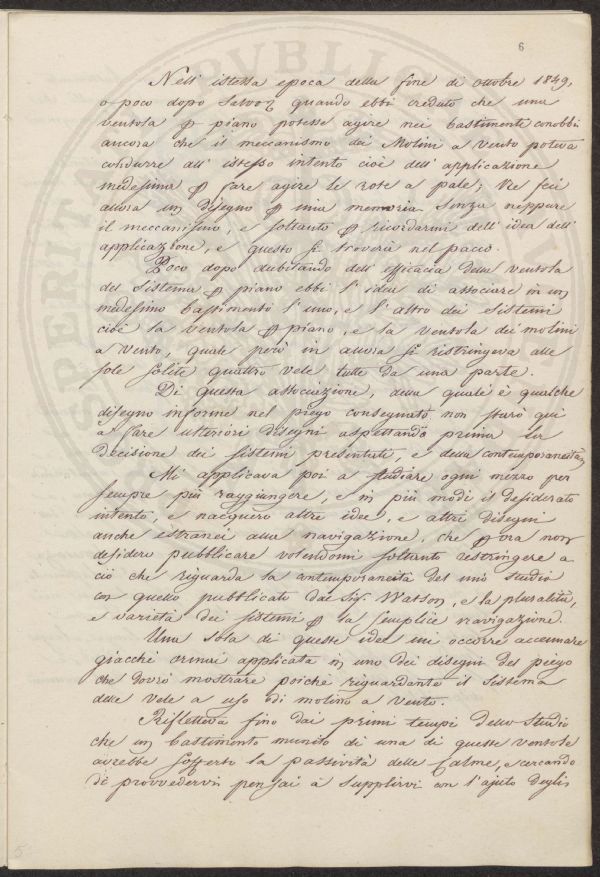 6
Nell' istessa epoca della fine di ottobre 1849,
o poco dopo quando ebbi creduto che una
ventola p piano potesse agire nei bastimenti conobbi
ancora che il meccanismo dei Molini a vento poteva
condurre all' istesso intento cioè dell' applicazione
medesima p fare agire le rote a pale; Ne feci
allora un disegno p mia memoria senza neppure
il meccanismo, e soltanto p ricordarmi dell' idea dell'
applicazione, e questo si troverà nel pacco.
Poco dopo dubitando dell' efficacia della ventola
del sistema p piano ebbi l' idea di associare in un
medesimo bastimento l' uno, e l' altro dei sistemi
cioè la ventola p piano, e la ventola dei molini
a vento, quale però in allora si ristringeva alle
sole solite quattro vele tutte da una parte.
Di questa associazione, della quale è qualche
disegno informe nel piego consegnato non starò qui
a fare ulteriori disegni aspettando prima la
decisione dei sistemi presentati, e della contemporaneità
Mi applicava poi a studiare ogni mezzo per
sempre più raggiungere, e in più modi il desiderato
intento, e nacquero altre idee, e altri disegni
anche estranei alla navigazione, che p ora non
desidero pubblicare volendomi soltanto restringere a
ciò che riguarda la contemporaneità del mio studio
con quello pubblicato dal Sig. Watson, e la pluralità,
e varietà dei sistemi p la semplice navigazione.
Una sola di queste idee mi occorre accennare
giacchè ormai applicata in uno dei disegni del piego
che dovrò mostrare poichè riguardante il sistema
delle vele a uso di molino a vento.
Rifletteva fino dai primi tempi dello studio
che un bastimento munito di una di queste ventole
avrebbe sofferto la passività delle calme, e cercando
di provvedervi pensai a supplirvi con l' ajuto degli
5